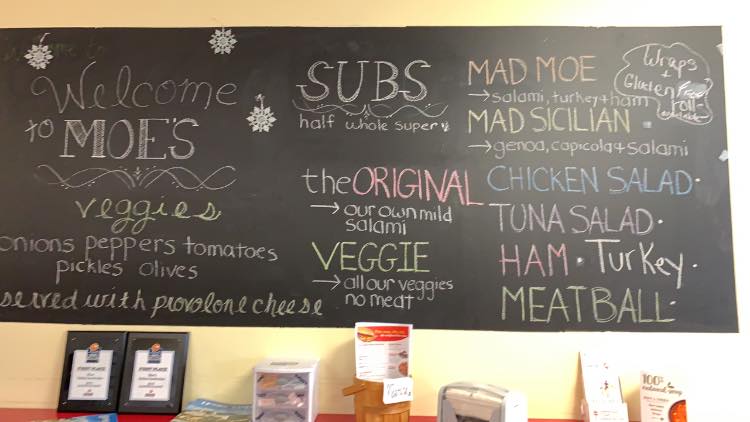 Welcome
to MOE'S
veggies
onions peppers tomatoes
pickles olives
served with provolone cheese
SUBS
half whole super
the ORIGINAL
→ our own mild
salami
VEGGIE
→ all our veggies
no meat
MAD MOE
→ salami, turkey + ham
MAD SICILIAN
→ genoa, capicola + salami
CHICKEN SALAD ·
TUNA SALAD ·
HAM · Turkey ·
MEATBALL ·
Wraps
+
Gluten free
roll
FIRST PLACE
FIRST PLACE
100%